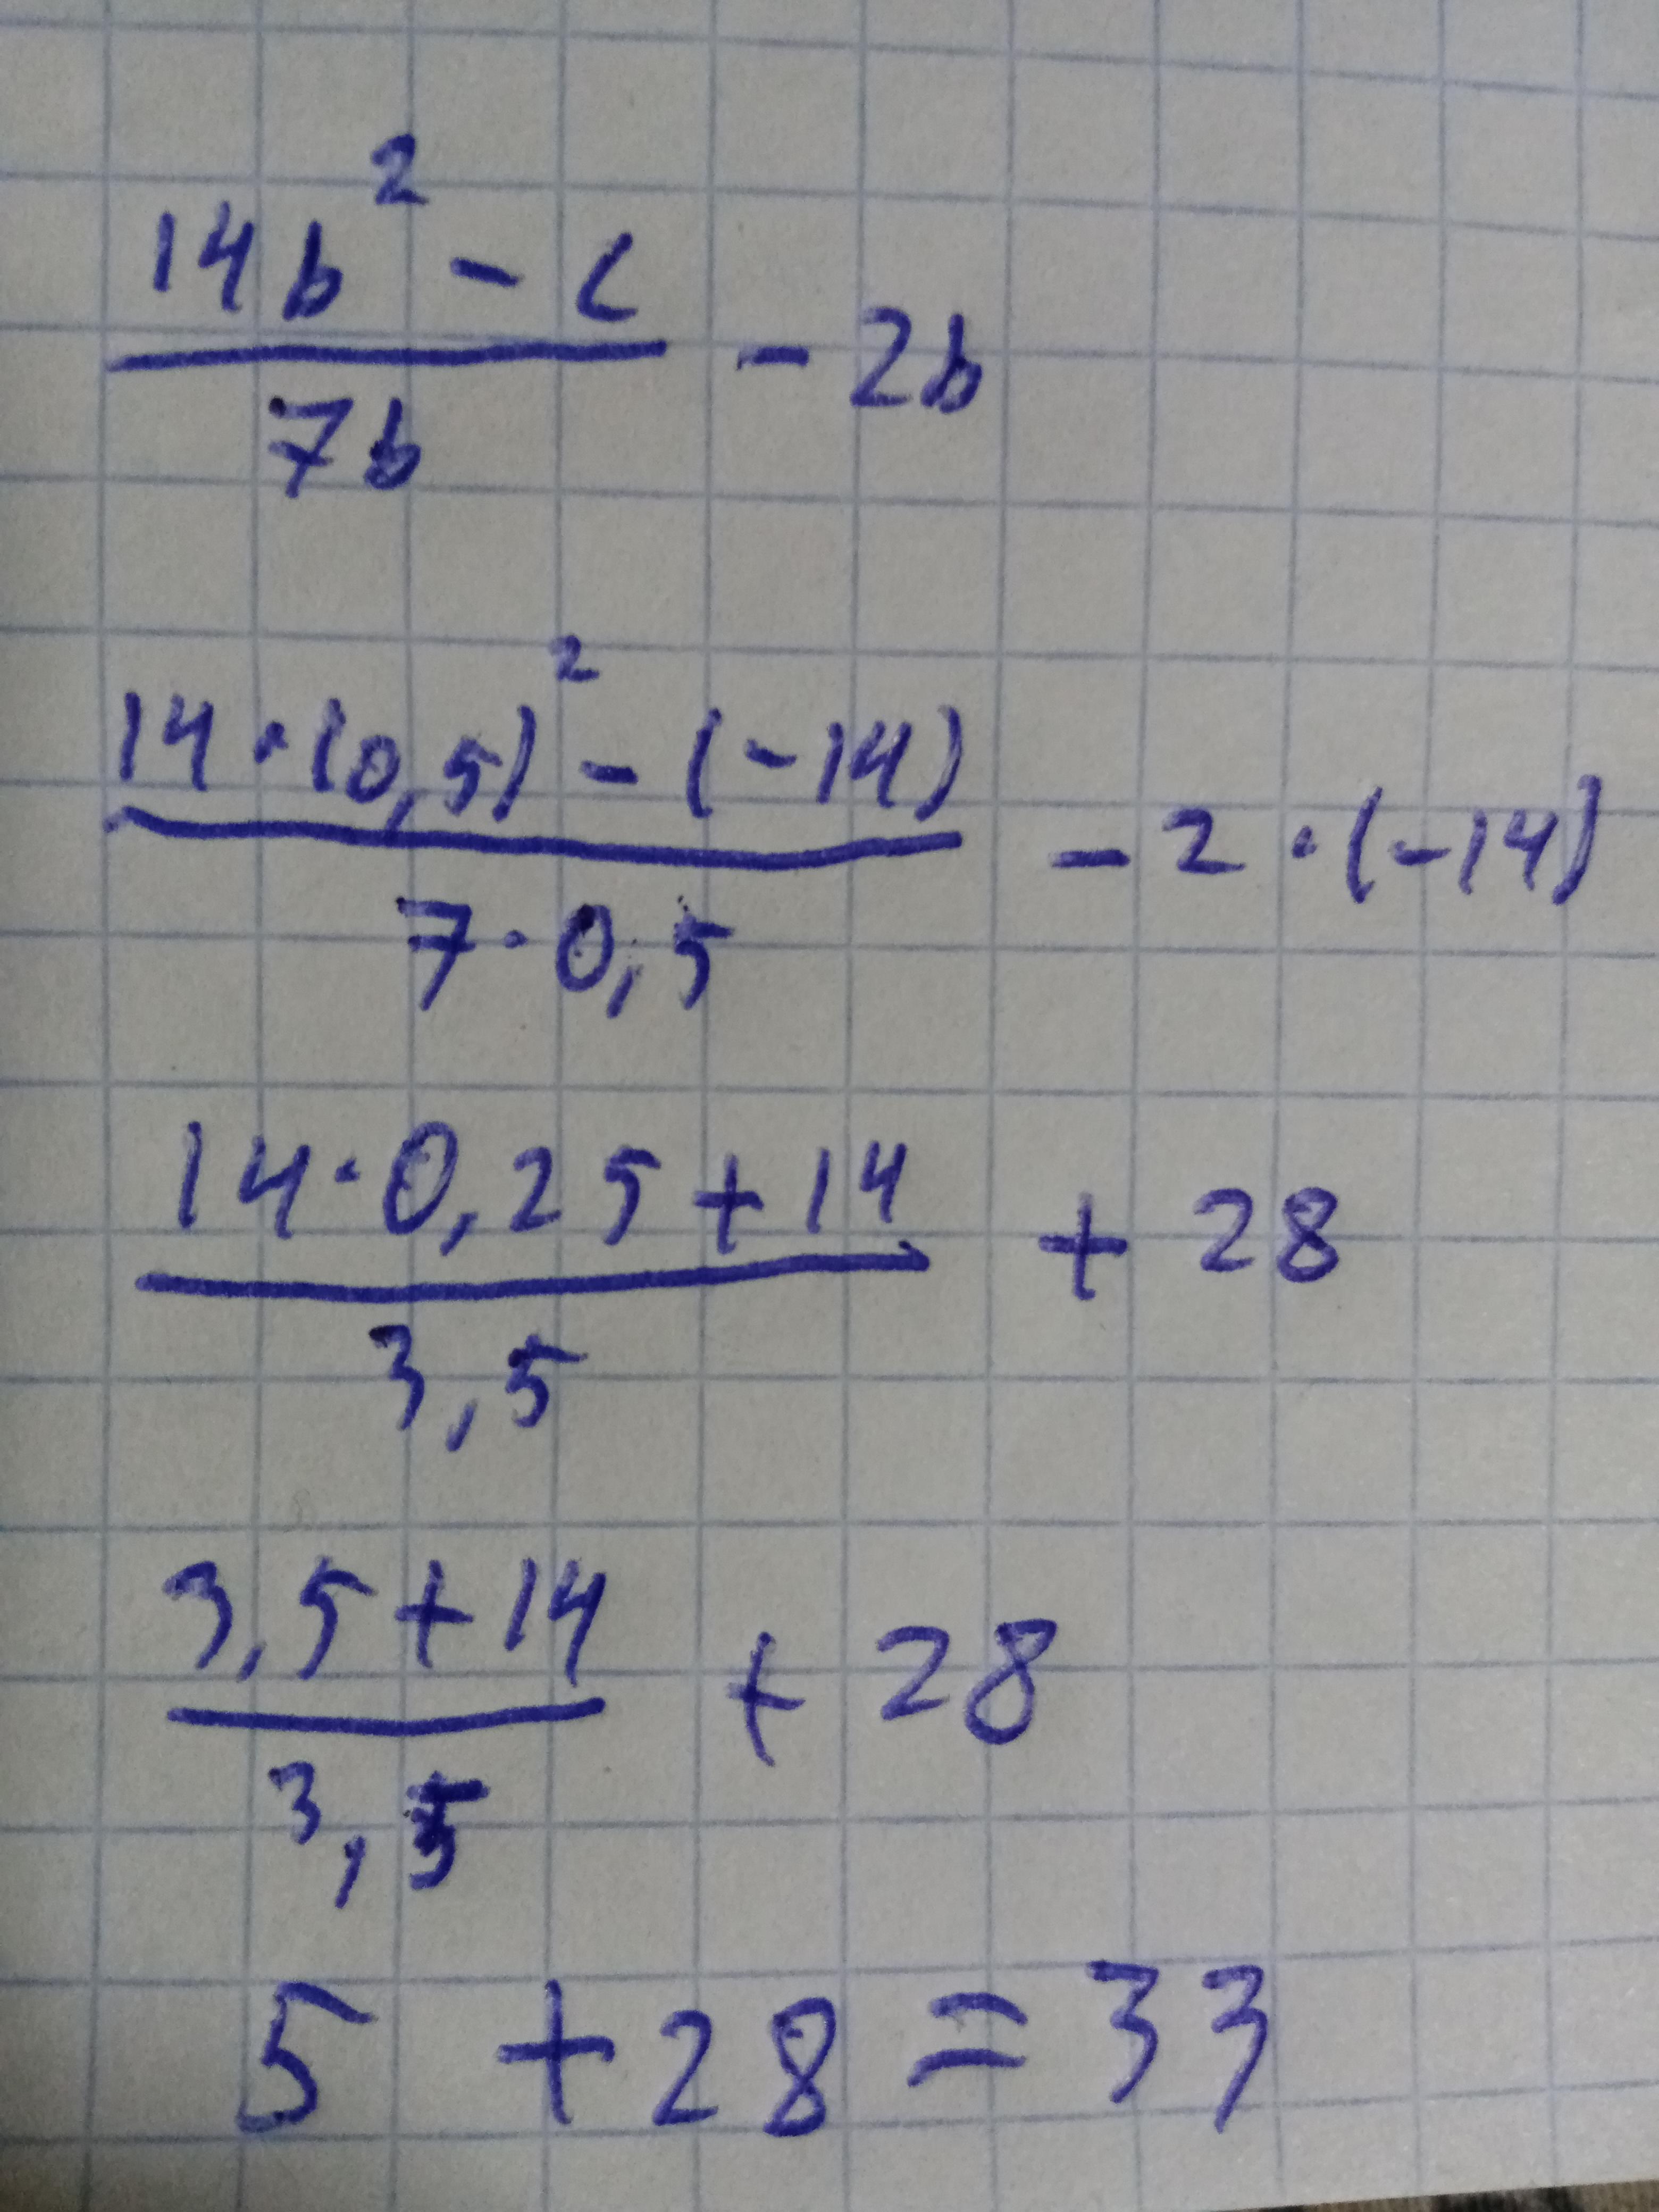 14b² - c
7b
- 2b
14 · (0,5)² - (-14)
7 · 0,5
- 2 · (-14)
14 · 0,25 + 14
3,5
+ 28
3,5 + 14
3,5
+ 28
5 + 28 = 33